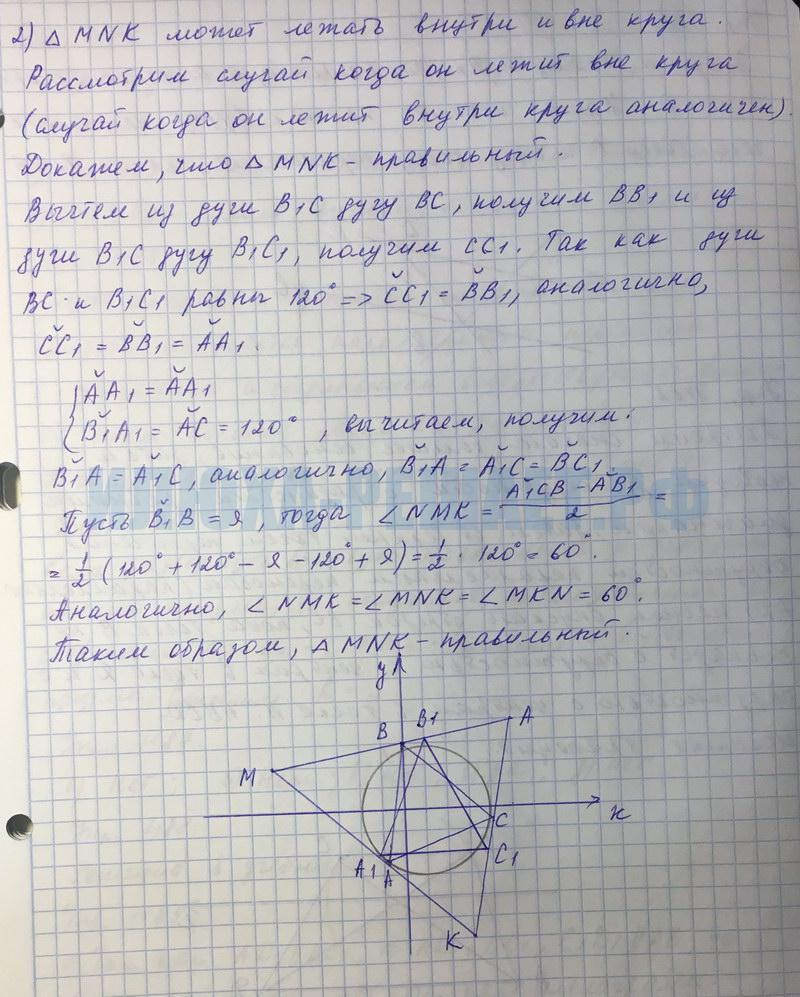 2) △ MNK может лежать внутри и вне круга.
Рассмотрим случай когда он лежит вне круга
(случай когда он лежит внутри круга аналогичен).
Докажем, что △ MNK - правильный.
Вычтем из дуги B1C дугу BC, получим BB1 и из
дуги B1C дугу B1C1, получим CC1. Так как дуги
BC и B1C1 равны 120° => C̆C1 = B̆B1, аналогично,
C̆C1 = B̆B1 = ĂA1.
{ ĂA1 = ĂA1
{ B̆1A1 = ĂC = 120° , вычитаем, получим:
B̆1A = Ă1C, аналогично, B̆1A = Ă1C = B̆C1
Пусть B̆1B = Я, тогда ∠NMK = (Ă1CB - ĂB1)/2 =
= 1/2 (120° + 120° - Я - 120° + Я) = 1/2 · 120° = 60°.
Аналогично, ∠NMK = ∠MNK = ∠MKN = 60°.
Таким образом, △ MNK - правильный.
y
B
B1
A
M
x
C
C1
A1
A
K